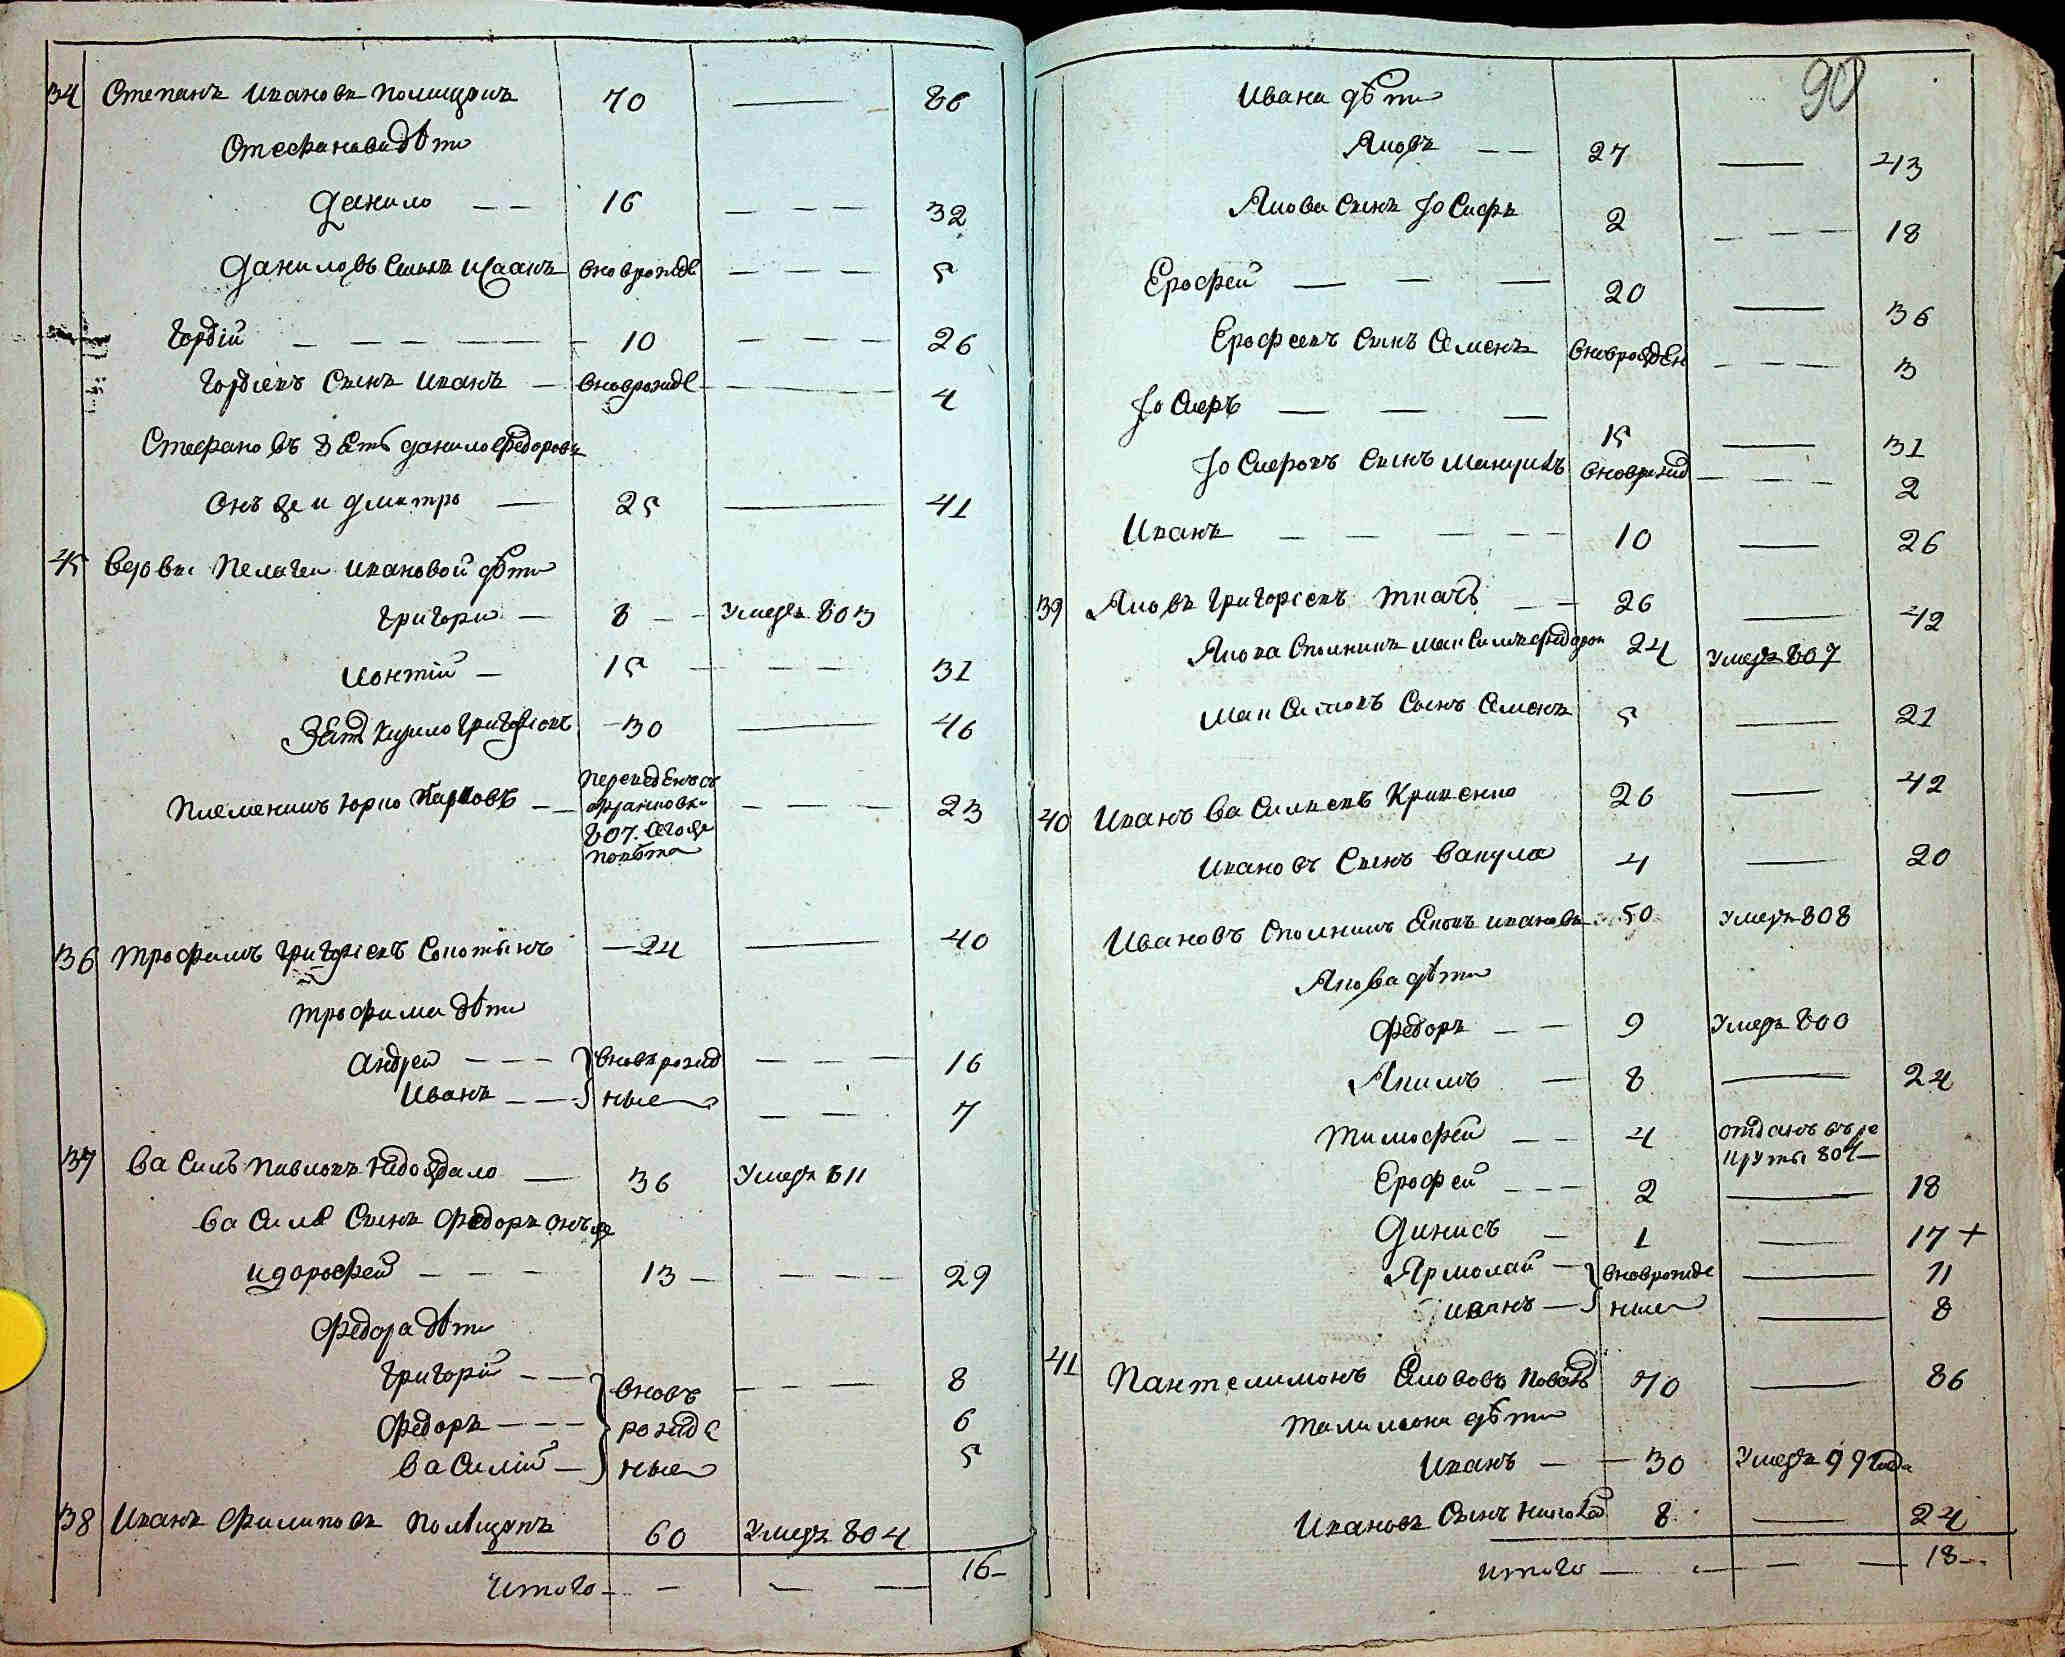 34 Степанъ Ивановъ Полищукъ 70 — 86
Стефанова дѣти
Данило — — 16 — — — 32
Даниловъ сынъ Исаакъ вноврожде — — — 5
Гордій — — — — 10 — — — 26
Гордіевъ сынъ Иванъ — вноврожде — — — 4
Стефановъ зеть Данило Федоровъ
онъ же и Дмитро — 25 — 41
45 Вдовы Пелагеи Ивановой дѣти
Григори — 8 — — Умеръ 803
Леонтій — 15 — — — 31
Зеть Кирило Григоріевъ — 30 — 46
Племенникъ Юрко Карповъ — — переведенъ съ — — — 23
807. сего же
повѣта
36 Трофимъ Григоріевъ — 24 — 40
Трофима дѣти
Андрей — — — вноврожд — — — 16
Иванъ — — ные — — 7
37 Василь Павловъ Надояло — 36 Умеръ 811
Василя сынъ Федоръ онъ же
и Дорофей — — — 13 — — — — 29
Федора дѣти
Григорій — — вновъ — — — 8
Федоръ — — — рожде 6
Василій — ные 5
38 Иванъ Филиповъ Полѣщукъ 60 Умеръ 804
Итого — — — — 16 —
90
Ивана дѣти
Яковъ — — 27 — 43
Якова сынъ Іосифъ 2 — — — 18
Ерофей — — — 20 — 36
Ерофеевъ сынъ Семенъ вноврожден — — — 3
Іосифъ — — — 15 — 31
Іосифовъ сынъ вноврожд — — — 2
Иванъ — — — — — 10 — 26
39 Яковъ Григоріевъ Ткачъ — — 26 — 42
Якова Сполникъ Максимъ Федоров 24 Умеръ 807
Максимовъ сынъ Семенъ 5 — 21
40 Иванъ Василиевъ Кривенко 26 — 42
Ивановъ сынъ Вакула 4 — 20
Ивановъ Сполникъ Яковъ Ивановъ 50 Умеръ 808
Якова дѣти
Федоръ — — 9 Умеръ 800
Якимъ — 8 — 24
Тимофей — — 4 отданъ въ ре
круты 804 —
Ерофей — — — 2 — 18
Динисъ — 1 — 17 +
Ярмолай — вноврожде — 11
Иванъ — ные — 8
41 Пантелимонъ 70 — 86
Талимона дѣти
Иванъ — — 30 Умеръ 99 года
Ивановъ сынъ Николай 8 — 24
Итого — — — — 18 —